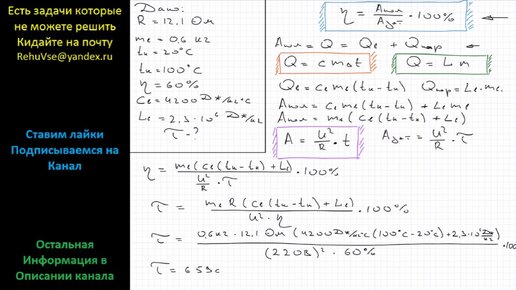 Есть задачи которые
не можете решить
Кидайте на почту
RehuVse@yandex.ru
Ставим лайки
Подписываемся на
Канал
Остальная
Информация в
Описании канала
Дано:
R = 12,1 Ом
mв = 0,6 кг
tн = 20°C
tк = 100°C
η = 60%
Cв = 4200 Дж/кг°C
Lв = 2,3·10⁶ Дж/кг
τ - ?
η = Aпол/Aзат · 100%
Aпол = Q = Qв + Qпар
Q = cmΔt
Q = Lm
Qв = cвmв(tк-tн) Qпар = Lв·mв
Aпол = cвmв(tк-tн) + Lвmв
Aпол = mв(cв(tк-tн) + Lв)
A = U²/R · t
Aзат = U²/R · τ
η = mв(cв(tк-tн)+Lв) / (U²/R · τ) · 100%
τ = mвR(cв(tк-tн)+Lв) / (U²·η) · 100%
τ = 0,6кг·12,1 Ом(4200Дж/кг°C(100°C-20°C)+2,3·10⁶ Дж/кг) / ((220В)²·60%) ·100
τ = 659с